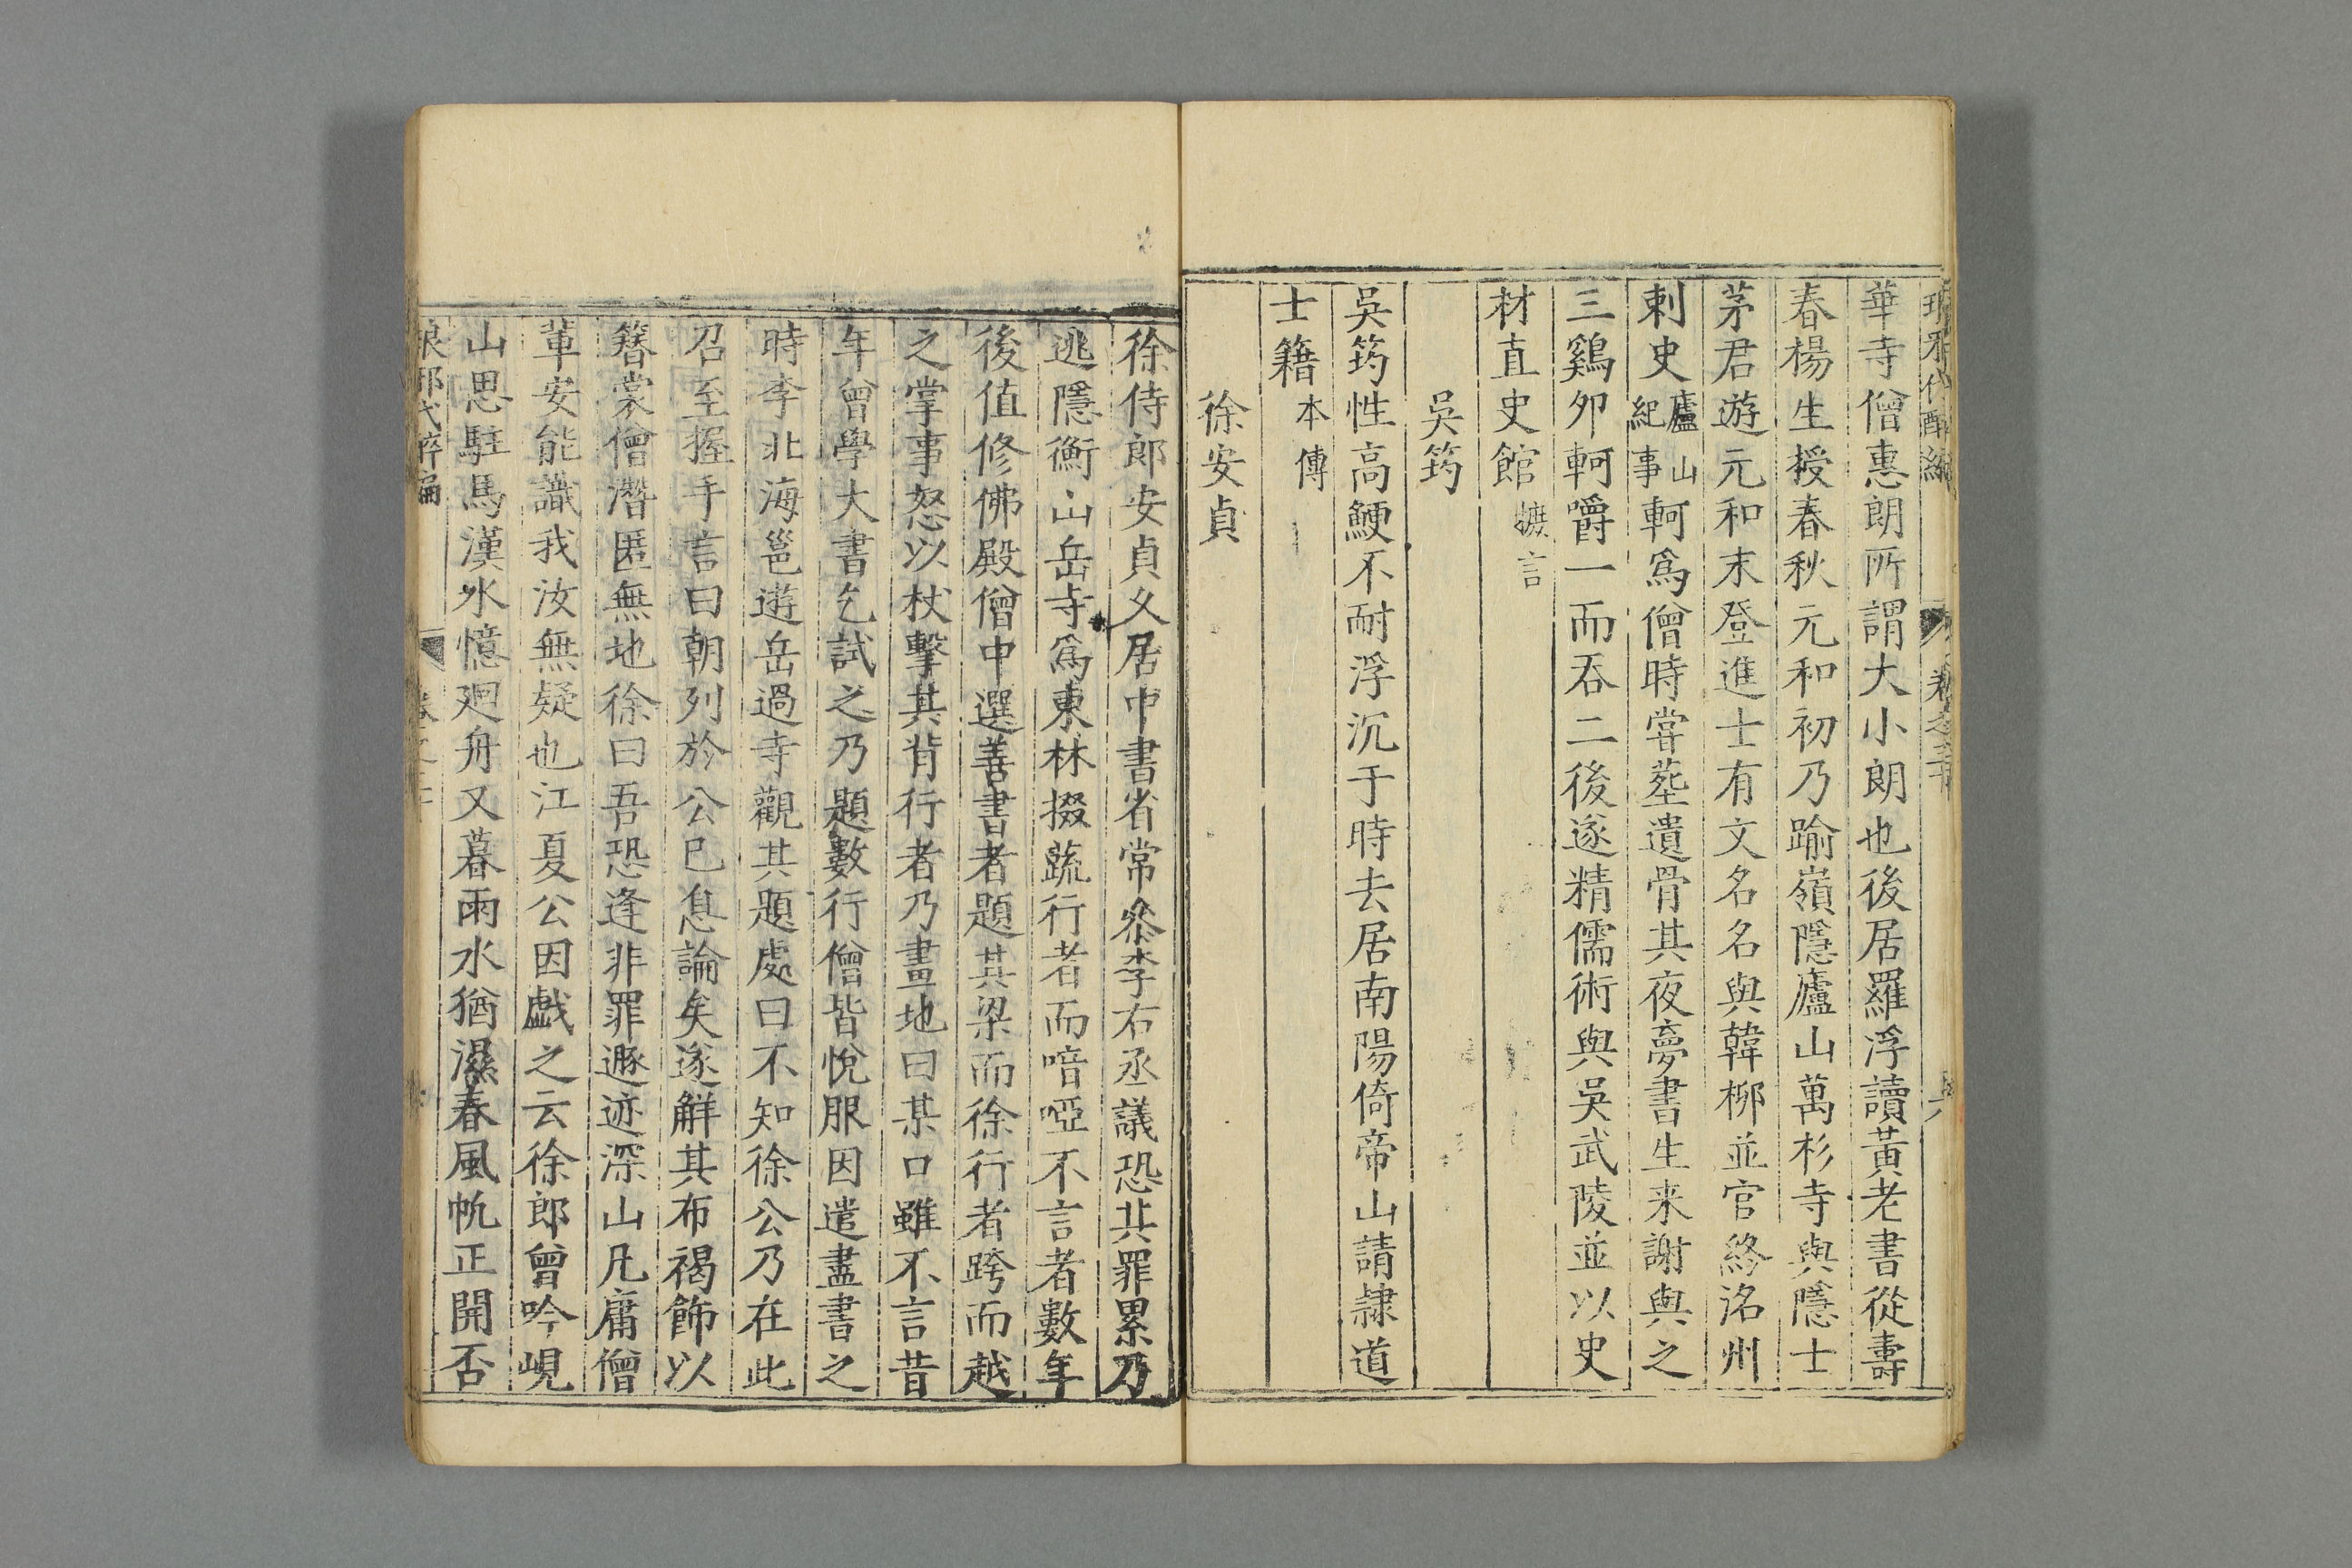 華寺僧惠朗所謂大小朗也後居羅浮讀黃老書從壽
春楊生授春秋元和初乃踰嶺隱廬山萬杉寺與隱士
茅君遊元和末登進士有文名名與韓柳並官終洺州
刺史廬山紀事軻爲僧時甞塟遺骨其夜夢書生来謝與之
三鷄夘軻嚼一而吞二後遂精儒術與吳武陵並以史
材直史館摭言
吳筠
吳筠性高鯁不耐浮沉于時去居南陽倚帝山請隷道
士籍本傳
徐安貞
徐侍郎安貞久居中書省常叅李右丞議恐其罪累乃
逃隱衡山岳寺爲東林掇蔬行者而喑啞不言者數年
後值修佛殿僧中選善書者題其梁而徐行者跨而越
之掌事怒以杖擊其背行者乃畫地曰某口雖不言昔
年曾學大書乞試之乃題數行僧皆悅服因遣盡書之
時李北海邕遊岳過寺觀其題處曰不知徐公乃在此
召至握手言曰朝列於公已息論矣遂觧其布褐飾以
簪裳僧潛匿無地徐曰吾恐逢非罪遯迹深山凡庸僧
軰安能識我汝無疑也江夏公因戯之云徐郎曾吟峴
山思駐馬漢水憶廻舟又暮雨水猶濕春風帆正開否